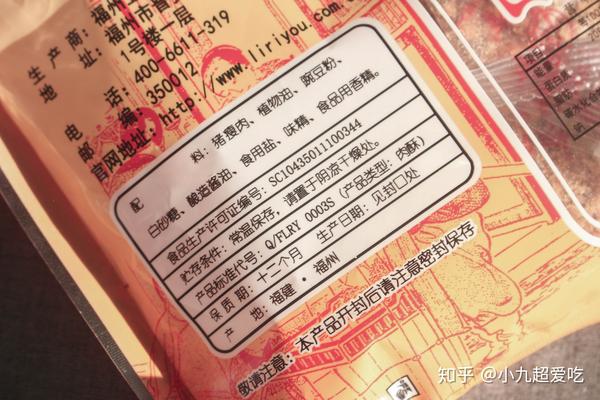 生产商：福州
地　址：福州市晋
1号楼一层
电　话：400-6611-319
邮　编：350012
官网地址：http://www.liriyou.com.c
配　料：猪瘦肉、植物油、豌豆粉、
白砂糖、酿造酱油、食用盐、味精、食品用香精。
食品生产许可证编号：SC10435011100344
贮存条件：常温保存，请置于阴凉干燥处。
产品标准代号：Q/FLRY 0003S（产品类型：肉酥）
保质期：十二个月　生产日期：见封口处
产　地：福建·福州
敬请注意：本产品开封后请注意密封保存
项目
能量
蛋白质
知乎 @小九超爱吃